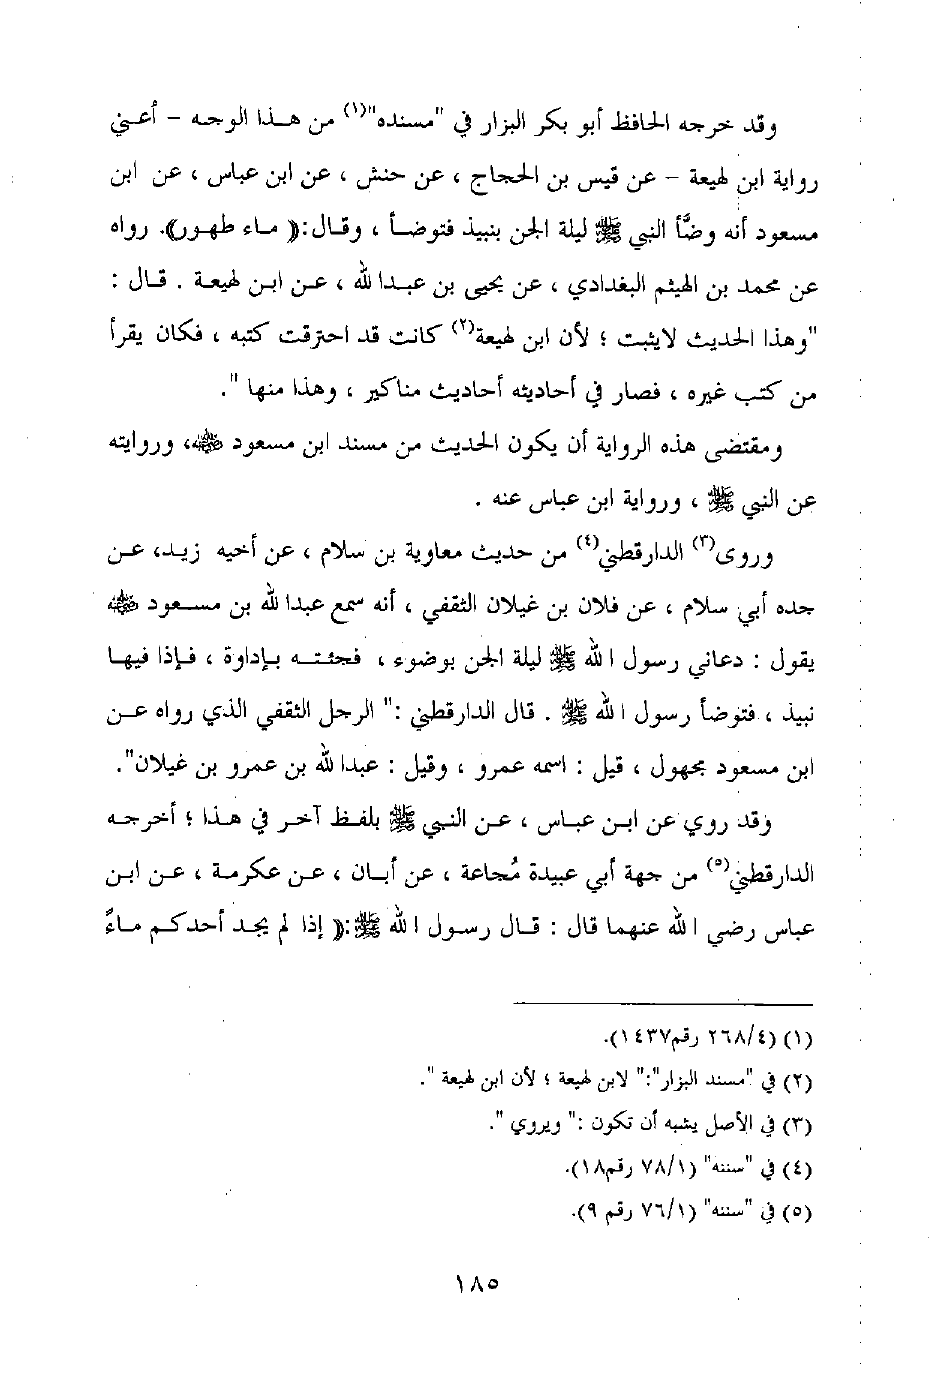 وقد خرجه الحافظ أبو بكر البزار في "مسنده"(١) من هذا الوجه – أعني
رواية ابن لهيعة – عن قيس بن الحجاج ، عن حنش ، عن ابن عباس ، عن ابن
مسعود أنه وضَّأ النبي ﷺ ليلة الجن بنبيذ فتوضأ ، وقال :(( ماء طهور)). رواه
عن محمد بن الهيثم البغدادي ، عن يحيى بن عبدا لله ، عن ابن لهيعة . قال :
"وهذا الحديث لايثبت ؛ لأن ابن لهيعة(٢) كانت قد احترقت كتبه ، فكان يقرأ
من كتب غيره ، فصار في أحاديثه أحاديث مناكير ، وهذا منها ".
ومقتضى هذه الرواية أن يكون الحديث من مسند ابن مسعود ﷺ، وروايته
عن النبي ﷺ ، ورواية ابن عباس عنه .
وروى(٣) الدارقطني(٤) من حديث معاوية بن سلام ، عن أخيه زيد، عن
جده أبي سلام ، عن فلان بن غيلان الثقفي ، أنه سمع عبدا لله بن مسعود ﷺ
يقول : دعاني رسول ا لله ﷺ ليلة الجن بوضوء ، فجئته بإداوة ، فإذا فيها
نبيذ ، فتوضأ رسول ا لله ﷺ . قال الدارقطني :" الرجل الثقفي الذي رواه عن
ابن مسعود مجهول ، قيل : اسمه عمرو ، وقيل : عبدا لله بن عمرو بن غيلان".
وقد روي عن ابن عباس ، عن النبي ﷺ بلفظ آخر في هذا ؛ أخرجه
الدارقطني(٥) من جهة أبي عبيدة مُجاعة ، عن أبان ، عن عكرمة ، عن ابن
عباس رضي ا لله عنهما قال : قال رسول ا لله ﷺ :(( إذا لم يجد أحدكم ماءً
(١) (٢٦٨/٤ رقم١٤٣٧).
(٢) في "مسند البزار":" لابن لهيعة ؛ لأن ابن لهيعة ".
(٣) في الأصل يشبه أن تكون :" ويروي ".
(٤) في "سننه" (٧٨/١ رقم١٨).
(٥) في "سننه" (٧٦/١ رقم ٩).
١٨٥